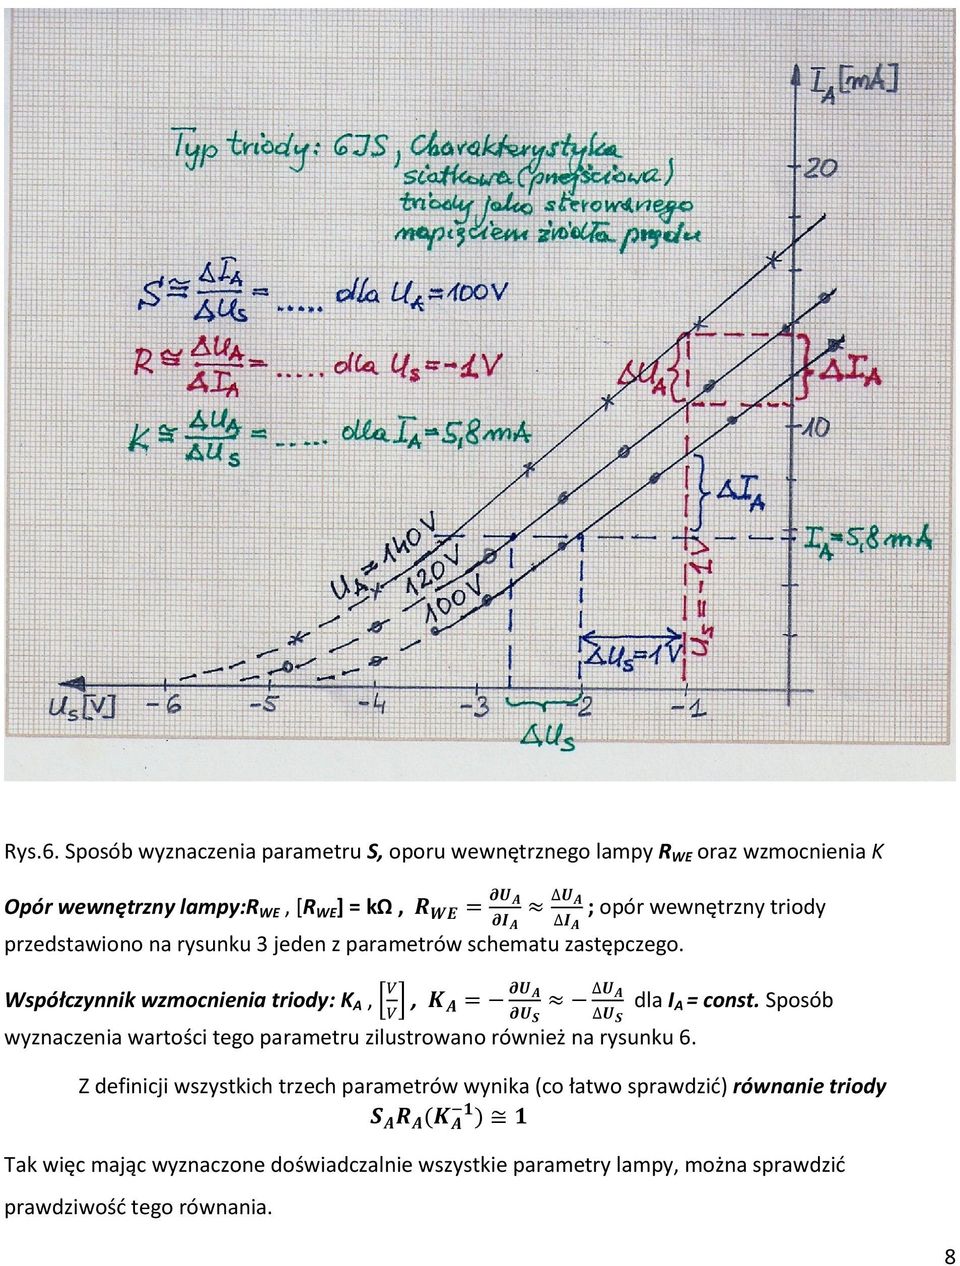 I_A [mA]
Typ triody: 6J5, Charakterystyka
siatkowa (przejściowa)
triody jako sterowanego
napięciem źródła prądu
20
S ≅ ΔI_A/ΔU_S = ..... dla U_A = 100V
R ≅ ΔU_A/ΔI_A = ..... dla U_S = -1V
ΔU_A
ΔI_A
K ≅ ΔU_A/ΔU_S = ..... dla I_A = 5,8mA
10
ΔI_A
U_A = 140V
120V
100V
I_A = 5,8mA
U_S = -1V
ΔU_S = 1V
U_S [V] -6 -5 -4 -3 -2 -1
ΔU_S
Rys.6. Sposób wyznaczenia parametru S, oporu wewnętrznego lampy R_WE oraz wzmocnienia K
Opór wewnętrzny lampy:R_WE , [R_WE] = kΩ , R_WE = ∂U_A/∂I_A ≈ ΔU_A/ΔI_A ; opór wewnętrzny triody
przedstawiono na rysunku 3 jeden z parametrów schematu zastępczego.
Współczynnik wzmocnienia triody: K_A , [V/V] , K_A = −∂U_A/∂U_S ≈ −ΔU_A/ΔU_S dla I_A = const. Sposób
wyznaczenia wartości tego parametru zilustrowano również na rysunku 6.
Z definicji wszystkich trzech parametrów wynika (co łatwo sprawdzić) równanie triody
S_A R_A (K_A^−1) ≅ 1
Tak więc mając wyznaczone doświadczalnie wszystkie parametry lampy, można sprawdzić
prawdziwość tego równania.
8